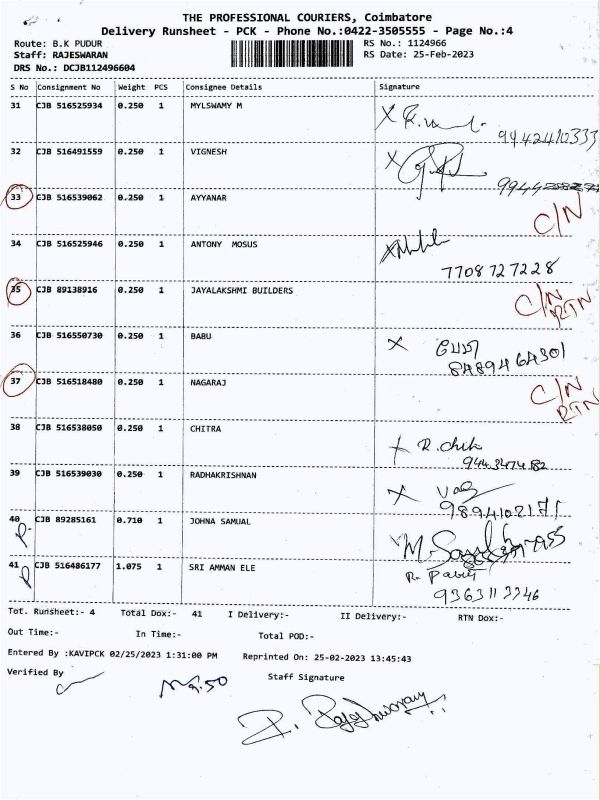 THE PROFESSIONAL COURIERS, Coimbatore
Delivery Runsheet - PCK - Phone No.:0422-3505555 - Page No.:4
Route: B.K PUDUR RS No.: 1124966
Staff: RAJESWARAN RS Date: 25-Feb-2023
DRS No.: DCJB112496604
S No Consignment No Weight PCS Consignee Details Signature
31 CJB 516525934 0.250 1 MYLSWAMY M
9442410333
32 CJB 516491559 0.250 1 VIGNESH
33 CJB 516539062 0.250 1 AYYANAR C/N
34 CJB 516525946 0.250 1 ANTONY MOSUS
7708727228
35 CJB 89138916 0.250 1 JAYALAKSHMI BUILDERS C/N
RTN
36 CJB 516550730 0.250 1 BABU பாபு
8489464301
37 CJB 516518480 0.250 1 NAGARAJ C/N
RTN
38 CJB 516538050 0.250 1 CHITRA
39 CJB 516539030 0.250 1 RADHAKRISHNAN
40 CJB 89285161 0.710 1 JOHNA SAMUAL
41 CJB 516486177 1.075 1 SRI AMMAN ELE
Tot. Runsheet:- 4 Total Dox:- 41 I Delivery:- II Delivery:- RTN Dox:-
Out Time:- In Time:- Total POD:-
Entered By :KAVIPCK 02/25/2023 1:31:00 PM Reprinted On: 25-02-2023 13:45:43
Verified By Staff Signature